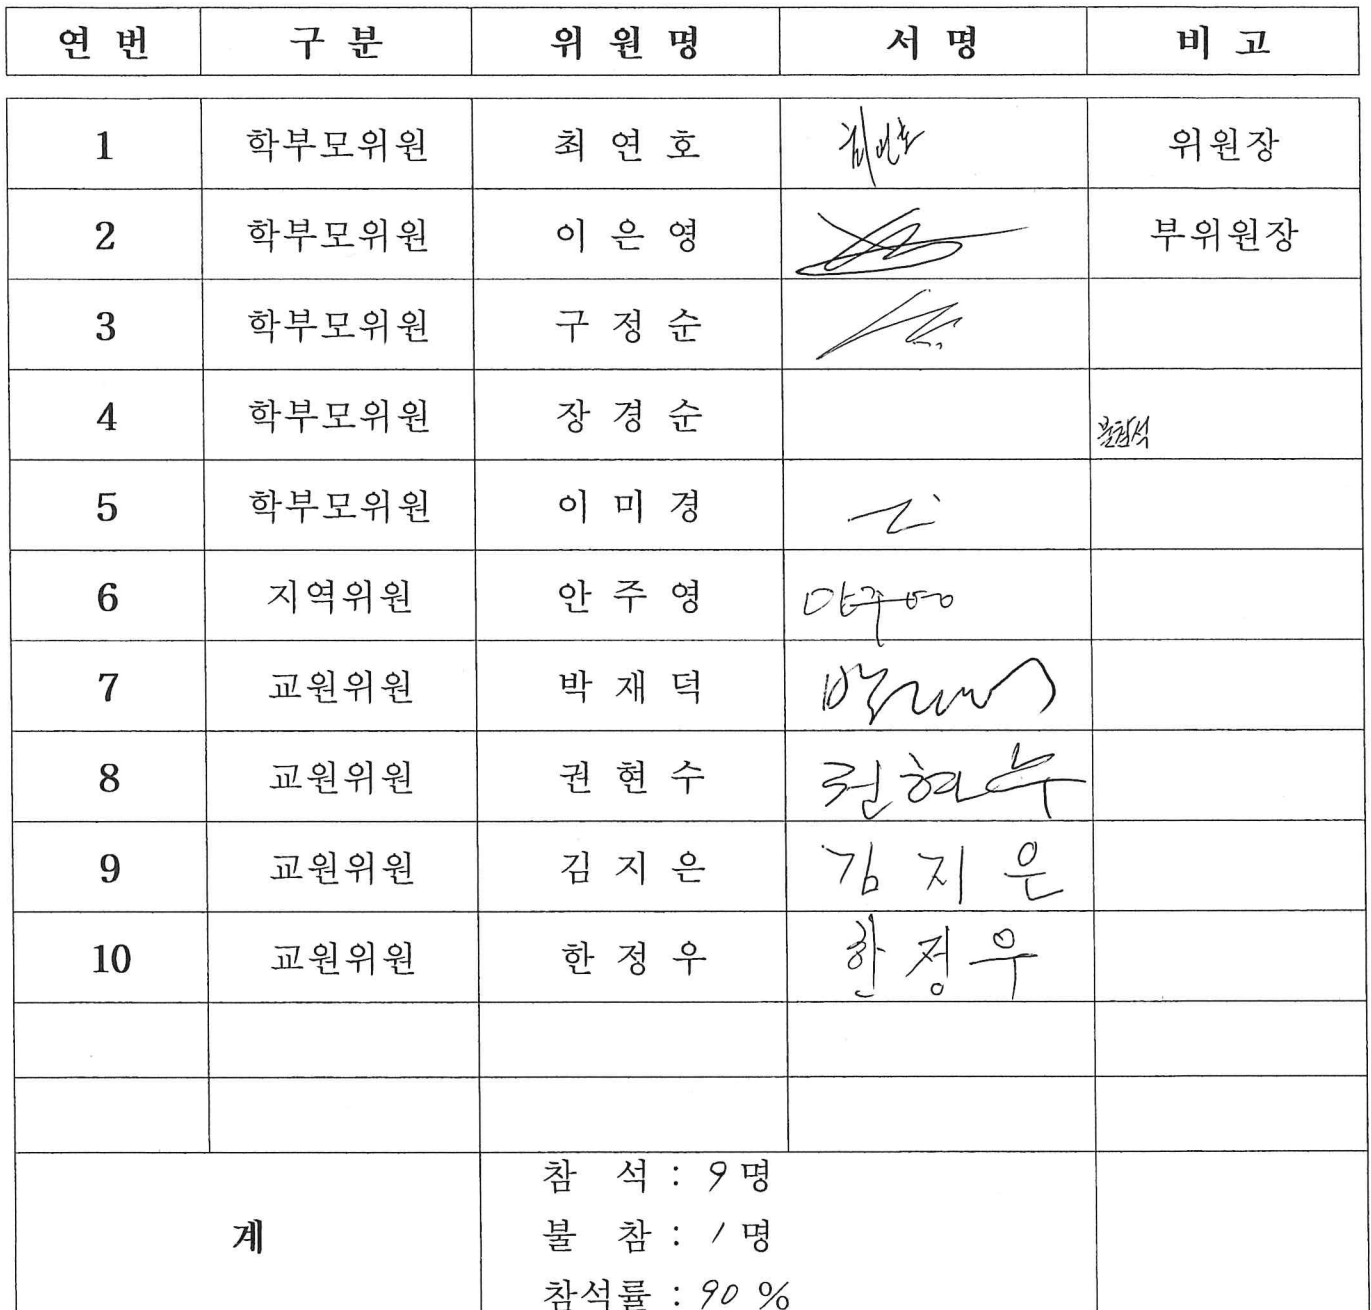 연 번 구 분 위 원 명 서 명 비 고
1 학부모위원 최 연 호 위원장
2 학부모위원 이 은 영 부위원장
3 학부모위원 구 정 순
4 학부모위원 장 경 순 불참석
5 학부모위원 이 미 경
6 지역위원 안 주 영 안주영
7 교원위원 박 재 덕
8 교원위원 권 현 수 권현수
9 교원위원 김 지 은 김 지 은
10 교원위원 한 정 우 한 정 우
참 석 : 9 명
계 불 참 : 1 명
참석률 : 90 %